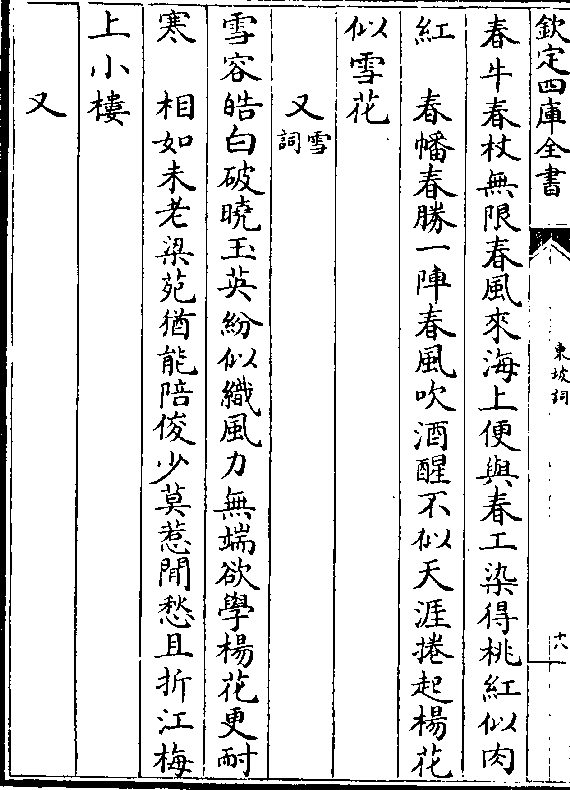 欽定四庫全書
東坡詞
十八
春牛春杖無限春風來海上便與春工染得桃紅似肉
紅　春幡春勝一陣春風吹酒醒不似天涯捲起楊花
似雪花
又雪詞
雪容皓白破曉玉英紛似織風力無端欲學楊花更耐
寒　相如未老梁苑猶能陪俊少莫惹閒愁且折江梅
上小樓
又